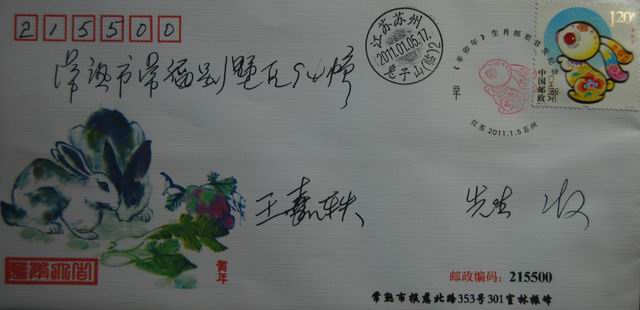 215500
江苏苏州
2011.01.05.17
《辛卯年》生肖邮票首发纪念
江苏 2011.1.5 苏州
1.20元
中国邮政
CHINA
常熟市常福别墅区54幢
王嘉轶 先生 收
贺年
邮政编码：215500
常熟市报慈北路353号301室林振峰